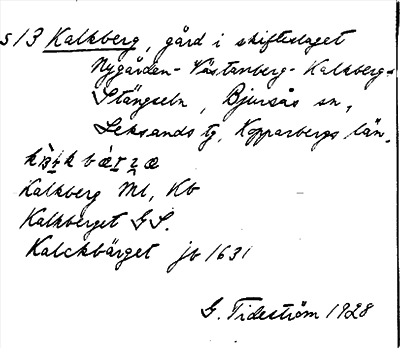 s/3 Kalkberg, gård i skifteslaget
Nygården- Västanberg- Kalkberg-
Stängseln, Bjursås sn,
Leksands tg, Kopparbergs län.
Kalkberg Ml, Kb
Kalkberget GS.
Kalckbärget jb 1631
G. Tideström 1928